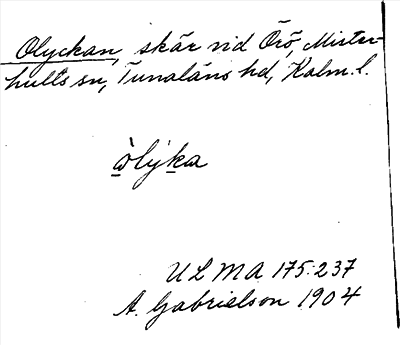 Olyckan, skär vid Örö, Mister-
hults sn, Tunaläns hd, Kalm. l.
òlýka
ULMA 175:237
A. Gabrielson 1904